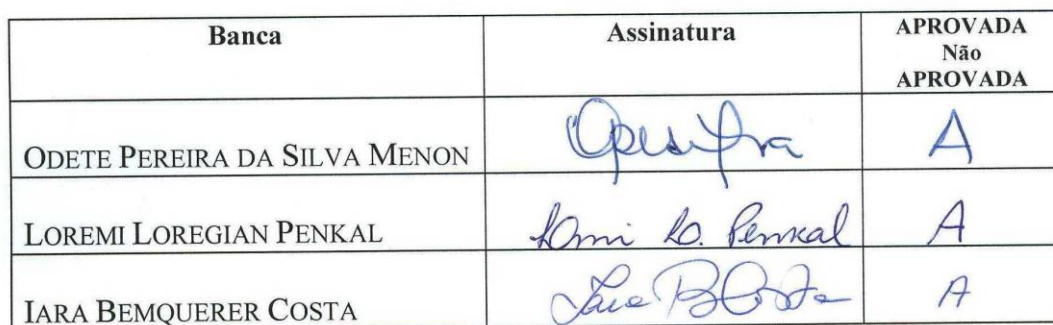 Banca Assinatura APROVADA
Não
APROVADA
ODETE PEREIRA DA SILVA MENON A
LOREMI LOREGIAN PENKAL Lo. Penkal A
IARA BEMQUERER COSTA Iara B Costa A